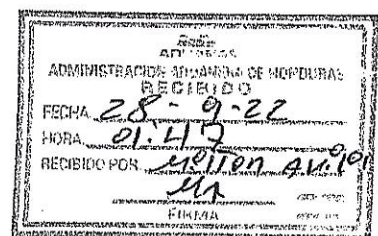 ADUANAS
ADMINISTRACION ADUANERA DE HONDURAS
RECIBIDO
FECHA 28-9-22
HORA 01:47
RECIBIDO POR
FIRMA